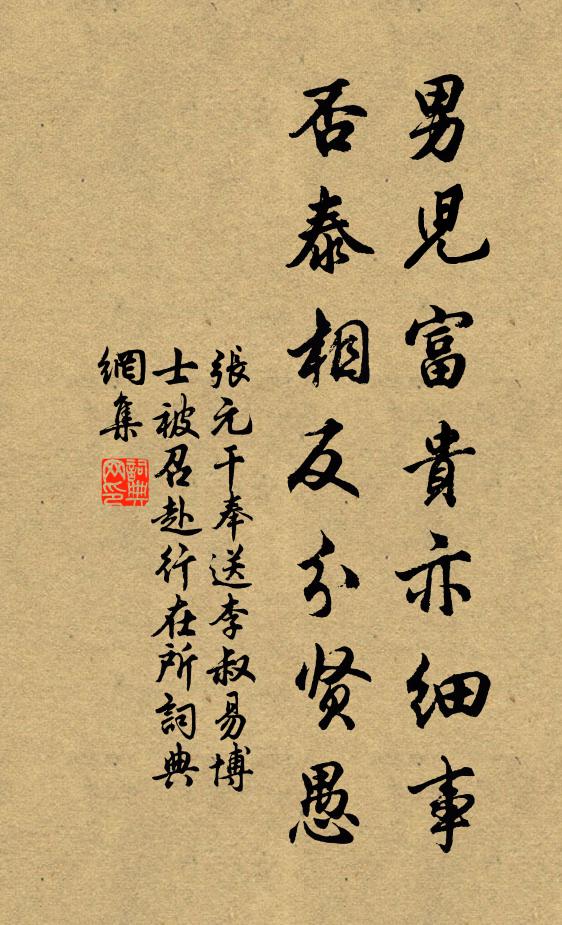 男児富貴亦细事
否泰相反分贤愚
張元干奉送李叔易博
士被召赴行在所詞典
網集
詞典网印